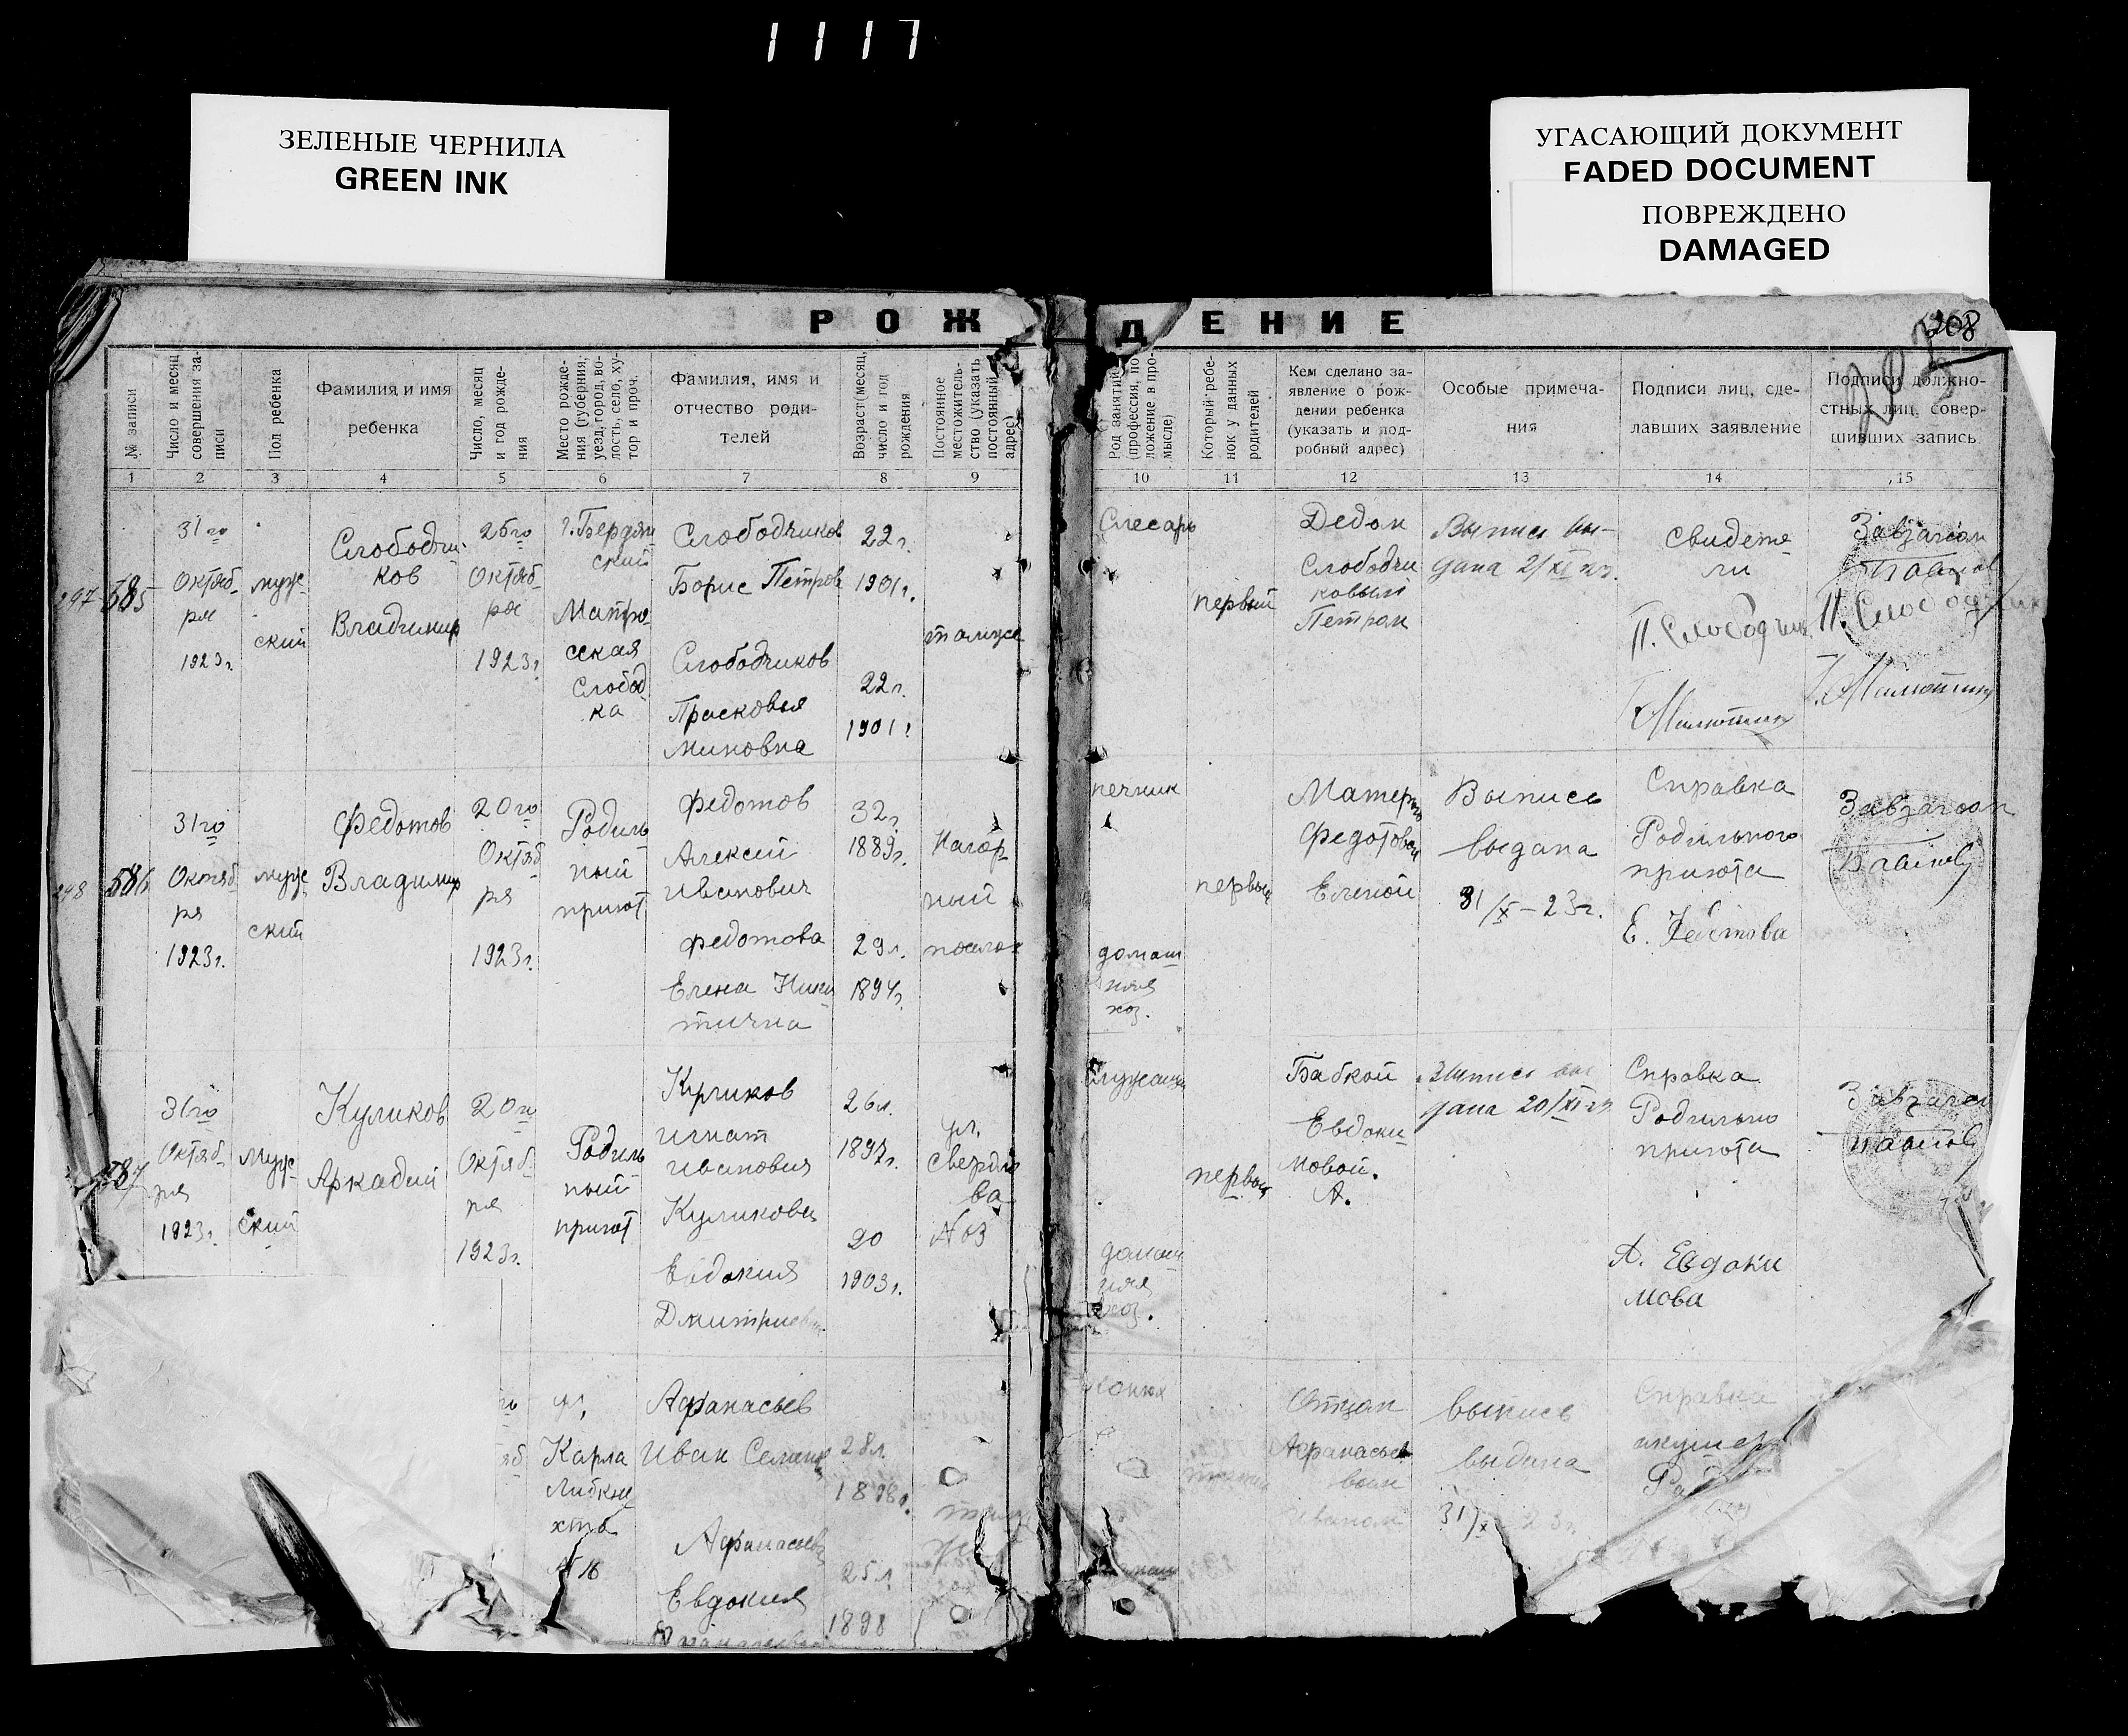 1117
ЗЕЛЕНЫЕ ЧЕРНИЛА
GREEN INK
УГАСАЮЩИЙ ДОКУМЕНТ
FADED DOCUMENT
ПОВРЕЖДЕНО
DAMAGED
РОЖДЕНИЕ
208
№ записи
Число и месяц
совершения за-
писи
Пол ребенка
Фамилия и имя
ребенка
Число, месяц
и год рожде-
ния
Место рожде-
ния (губерния,
уезд, город, во-
лость, село, ху-
тор и проч.
Фамилия, имя и
отчество роди-
телей
Возраст (месяц,
число и год
рождения
Постоянное
местожитель-
ство (указать
постоянный
адрес)
Род занятий
(профессия, по-
ложение в про-
мысле)
Который ребе-
нок у данных
родителей
Кем сделано за-
явление о рож-
дении ребенка
(указать и под-
робный адрес)
Особые примеча-
ния
Подписи лиц, сде-
лавших заявление
Подписи должно-
стных лиц, совер-
шивших запись
1 2 3 4 5 6 7 8 9 10 11 12 13 14 15
297
585
31го
Октяб-
ря
1923г.
муж-
ский
Слободчи-
ков
Владимир
25го
Октяб-
ря
1923г.
г. Бердян
ский
Слобод
ка
Слободчиков
Борис Петров
22г.
1901г.
Слободчиков
Прасковья
Миновна
22г.
1901г
также
Слесарь
первый
Дедом
Слободчи
ковым
Петром
Выпись вы-
дана 2/XI 23.
свидете-
ли
П. Слободчик
Милютин
Завзагсом
298
586
31го
Октяб
ря
1923г.
муж-
ский
Федотов
Владимир
20го
Октяб
ря
1923г.
Родиль
ный
приют
Федотов
Алексей
Иванович
32г.
1889г.
Федотова
Елена Ники
тична
29л.
1894г.
Нагор-
ный
поселок
печник
домаш
няя
хоз.
первый
Матерью
Федотовой
Еленой
Выпись
выдана
31/X-23г.
Справка
Родильного
приюта
Завзагсом
587
31го
Октяб-
ря
1923г.
муж-
ский
Куликов
Аркадий
20го
Октяб-
ря
1923г.
Родиль
ный
приют
Куликов
Игнат
Иванович
26л.
1897г.
Куликова
Евдокия
Дмитриев
20
1903г.
ул.
Свердло
ва
№3
домаш
няя
хоз.
первый
Бабкой
Евдоки-
мовой.
А.
Выпись вы
дана 20/XI 23
Справка
Родильно
приюта
А. Евдоки
мова
Завзагсом
ул.
Карла
Либкне
хта
№ 16
Афанасьев
Иван Семено
28л.
Афанасьева
Евдокия
25л.
1898
Отцом
Афанасье
вым
Иваном
выпись
выдана
31/X 23г.
Справка
акушер